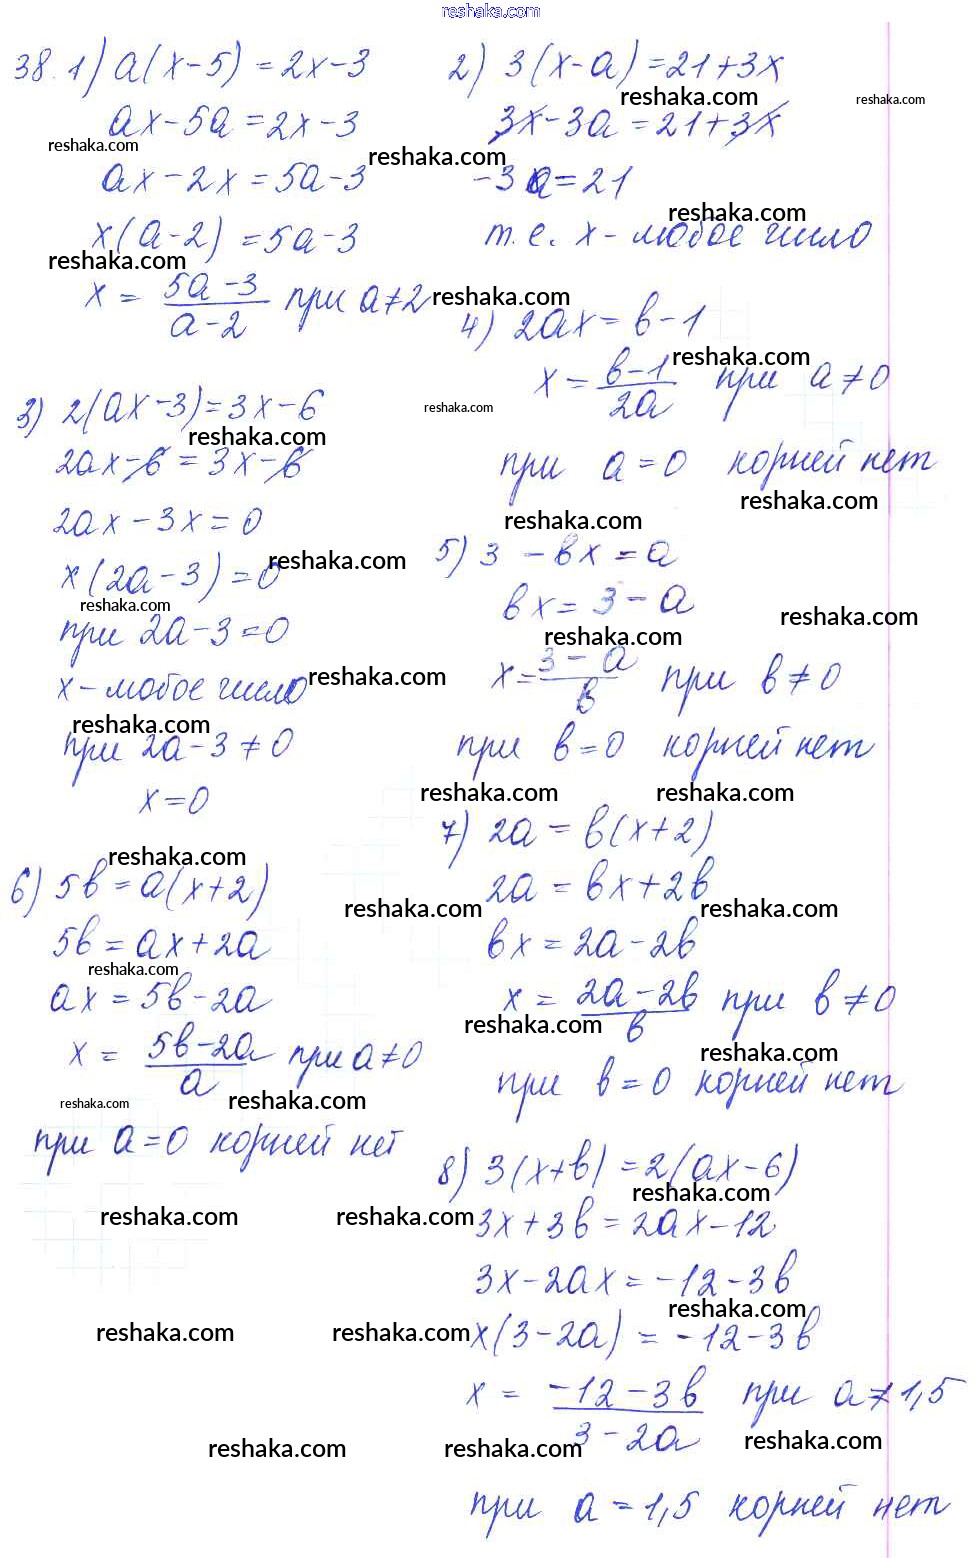 reshaka.com
38. 1) a(x-5) = 2x-3
ax-5a=2x-3
reshaka.com
reshaka.com
ax-2x=5a-3
x(a-2)=5a-3
reshaka.com
x = \frac{5a-3}{a-2} при a≠2
reshaka.com
2) 3(x-a)=21+3x
reshaka.com
reshaka.com
3x-3a=21+3x
-3a=21
reshaka.com
т.е. x-любое число
3) 2(ax-3)=3x-6
reshaka.com
reshaka.com
2ax-6=3x-6
2ax-3x=0
reshaka.com
x(2a-3)=0
reshaka.com
при 2a-3=0
x-любое число
reshaka.com
reshaka.com
при 2a-3≠0
x=0
4) 2ax=в-1
reshaka.com
x=\frac{в-1}{2a} при a≠0
при a=0 корней нет
reshaka.com
reshaka.com
5) 3-вx=a
вx=3-a
reshaka.com
reshaka.com
x=\frac{3-a}{в} при в≠0
при в=0 корней нет
reshaka.com
reshaka.com
reshaka.com
6) 5в=a(x+2)
5в=ax+2a
reshaka.com
ax=5в-2a
x = \frac{5в-2a}{a} при a≠0
reshaka.com
reshaka.com
при a=0 корней нет
7) 2a=в(x+2)
2a=вx+2в
reshaka.com
reshaka.com
вx=2a-2в
x = \frac{2a-2в}{в} при в≠0
reshaka.com
reshaka.com
при в=0 корней нет
8) 3(x+в)=2(ax-6)
reshaka.com
reshaka.com
reshaka.com
3x+3в=2ax-12
3x-2ax=-12-3в
reshaka.com
reshaka.com
reshaka.com
x(3-2a)=-12-3в
x = \frac{-12-3в}{3-2a} при a≠1,5
reshaka.com
reshaka.com
reshaka.com
при a=1,5 корней нет